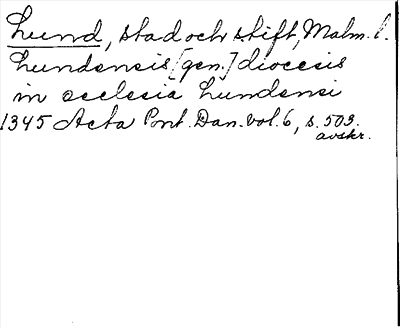 Lund, stad och stift, Malm. l.
Lundensis [gen.] diocesis
in ecclesia Lundensi
1345 Acta Pont. Dan. vol. 6, s. 503.
avskr.